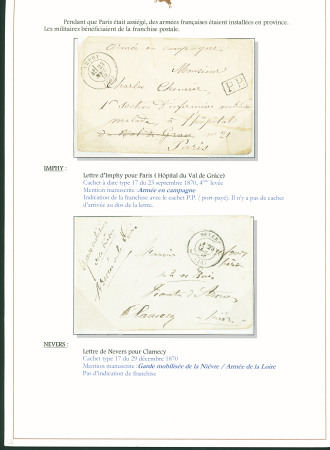 Pendant que Paris était assiégé, des armées françaises étaient installées en province.
Les militaires bénéficiaient de la franchise postale.
Armée en campagne
Monsieur
Charles
1ère section d'infirmiers
P.P.
à l'hôpital
du Val de Grâce n° 21
Paris
IMPHY :
Lettre d'Imphy pour Paris ( Hôpital du Val de Grâce)
Cachet à date type 17 du 25 septembre 1870, 4ème levée
Mention manuscrite :Armée en campagne
Indication de la franchise avec le cachet P.P. ( port-payé). Il n'y a pas de cachet
d'arrivée au dos de la lettre.
Monsieur
Clamecy
NEVERS :
Lettre de Nevers pour Clamecy
Cachet type 17 du 29 décembre 1870
Mention manuscrite :Garde mobilisée de la Nièvre / Armée de la Loire
Pas d'indication de franchise